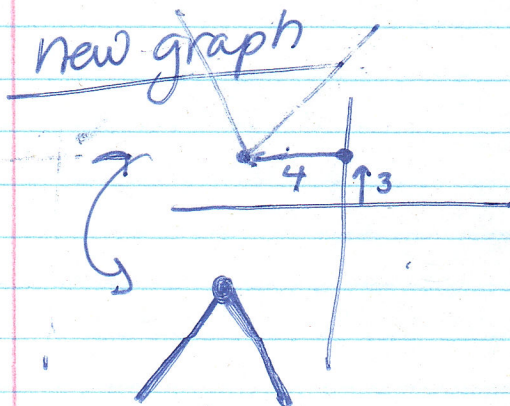 new graph
4 3